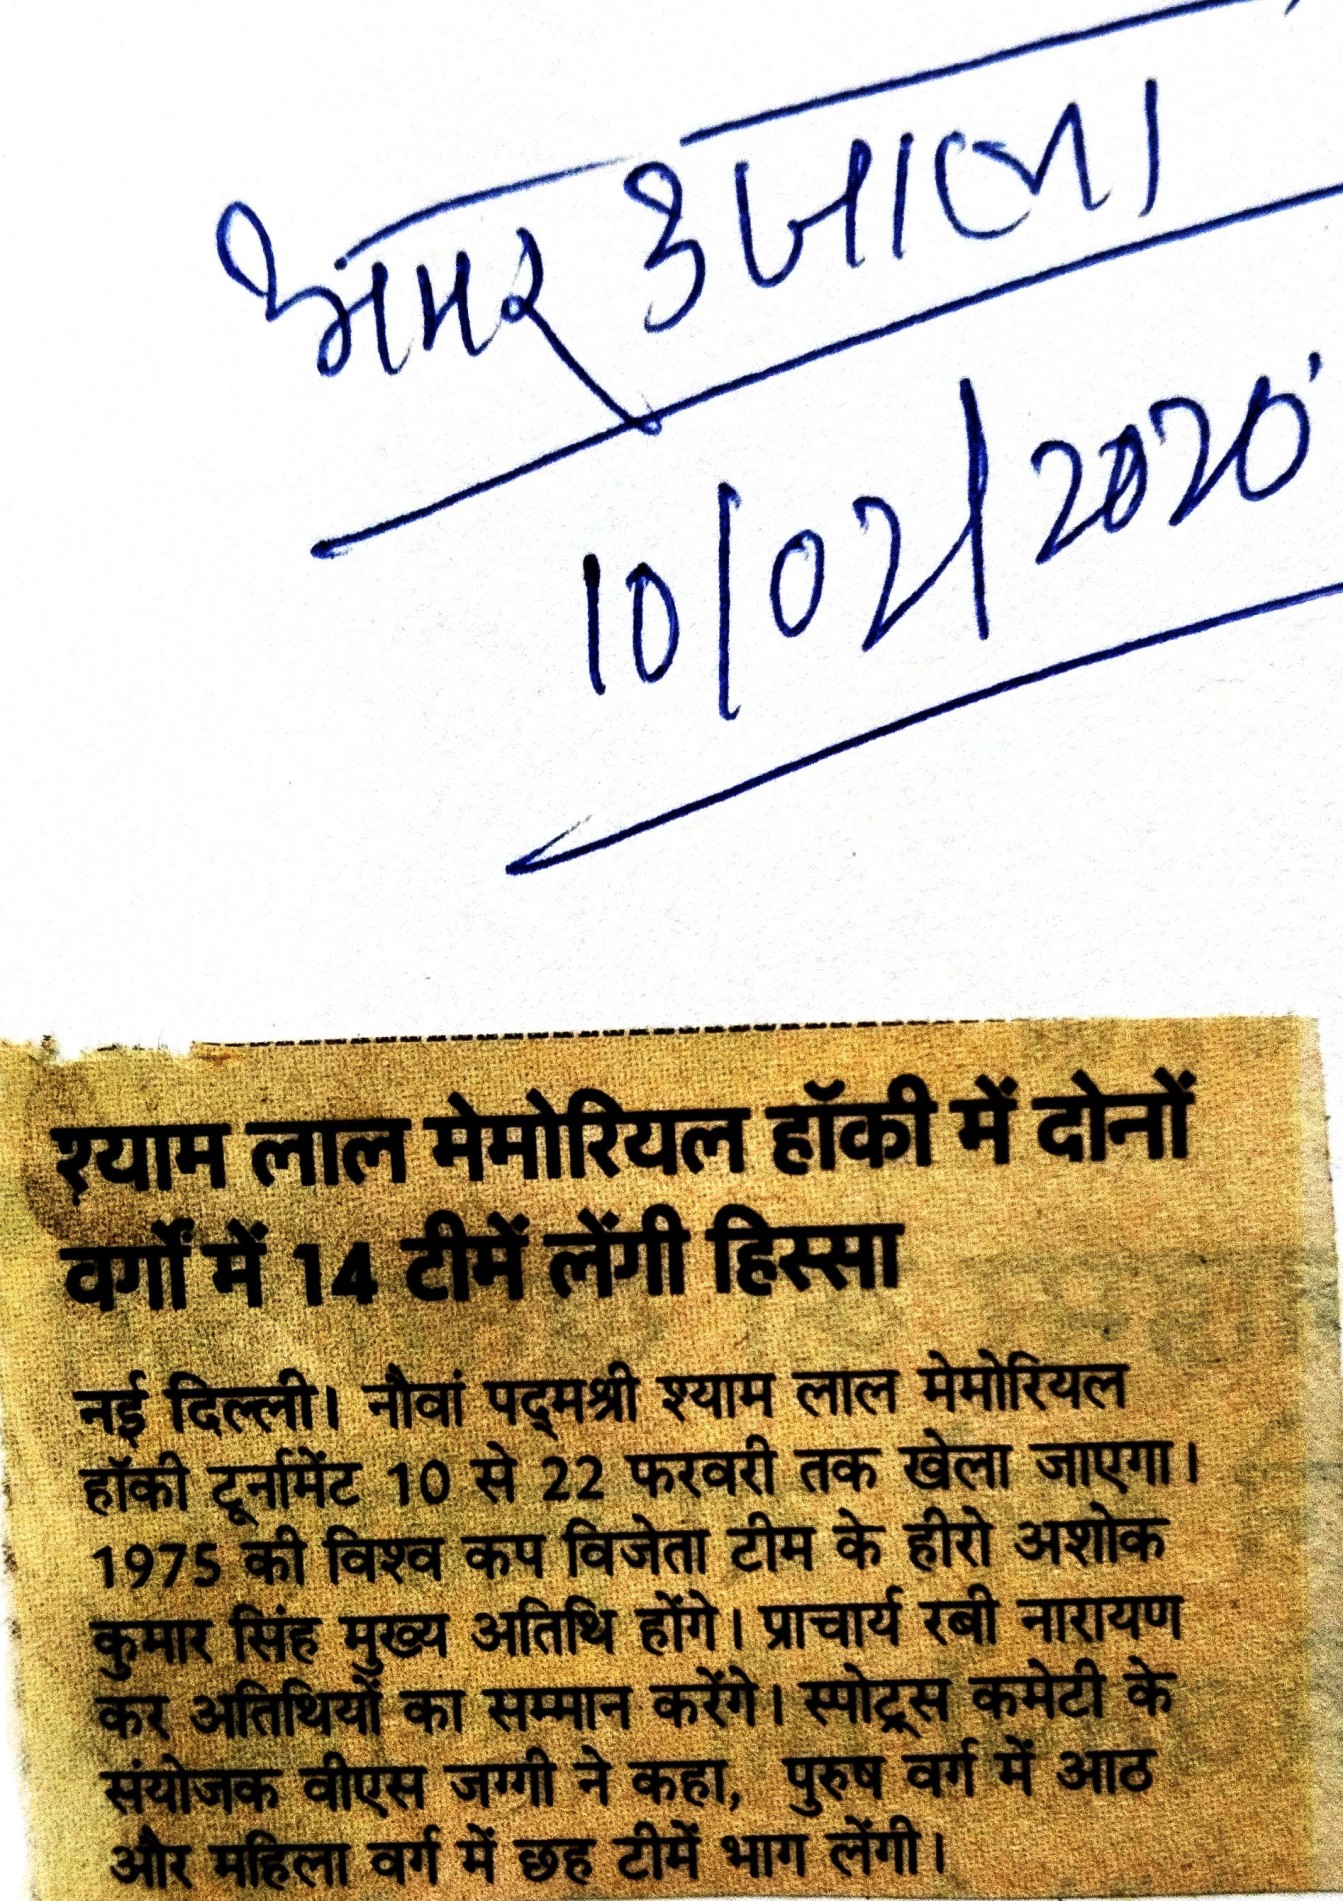 अमर उजाला
10/02/2020
श्याम लाल मेमोरियल हॉकी में दोनों
वर्गों में 14 टीमें लेंगी हिस्सा
नई दिल्ली। नौवां पद्मश्री श्याम लाल मेमोरियल
हॉकी टूर्नामेंट 10 से 22 फरवरी तक खेला जाएगा।
1975 की विश्व कप विजेता टीम के हीरो अशोक
कुमार सिंह मुख्य अतिथि होंगे। प्राचार्य रबी नारायण
कर अतिथियों का सम्मान करेंगे। स्पोट्र्स कमेटी के
संयोजक वीएस जग्गी ने कहा, पुरुष वर्ग में आठ
और महिला वर्ग में छह टीमें भाग लेंगी।